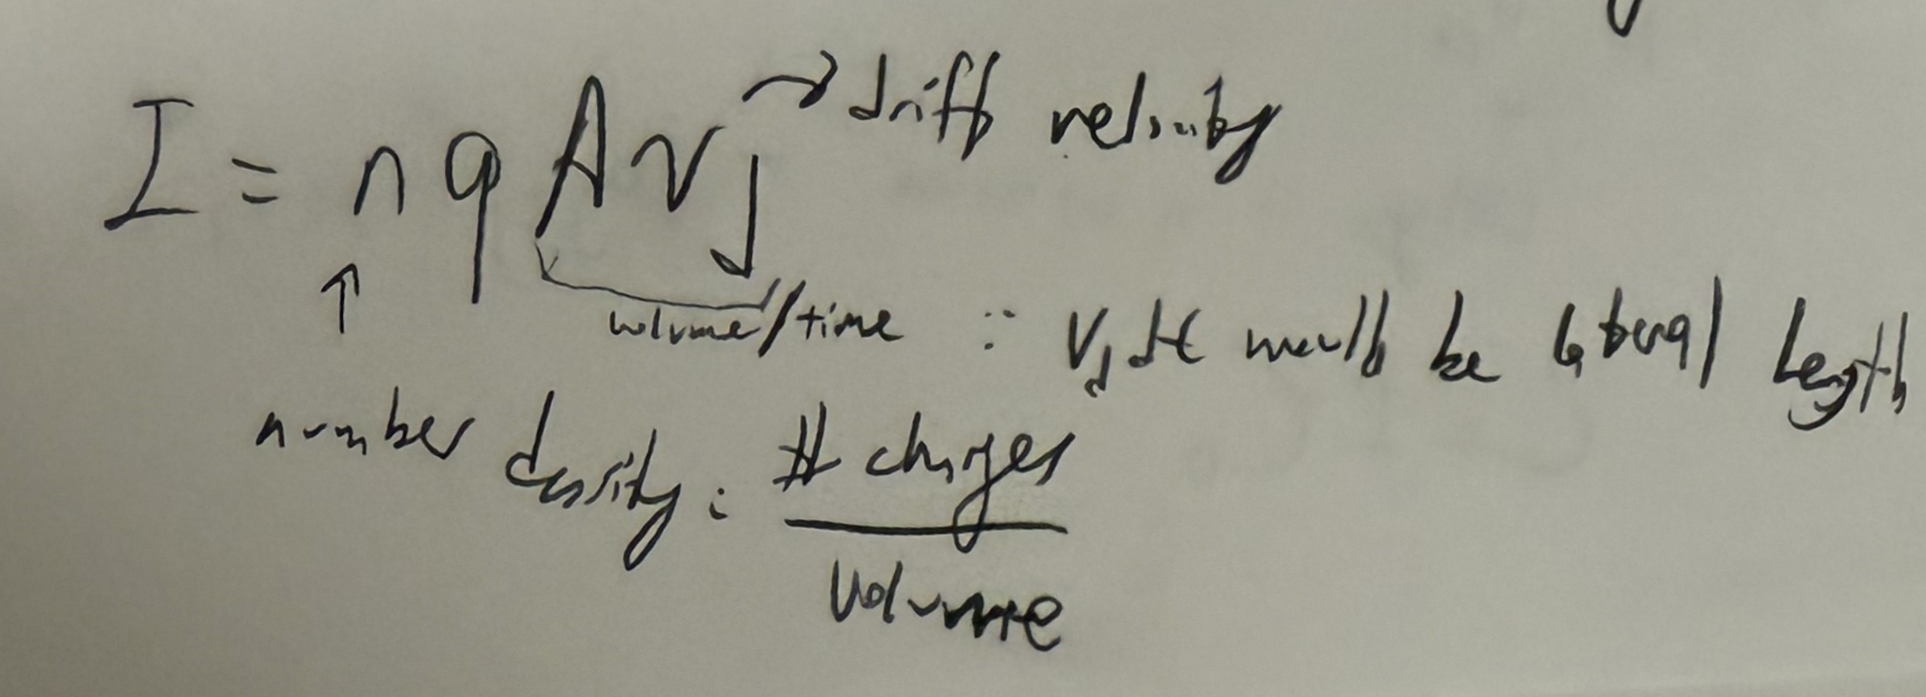 I = n q A v_d → drift velocity
↑ volume/time ∵ v_d dt would be lateral length
number density: # charges
volume